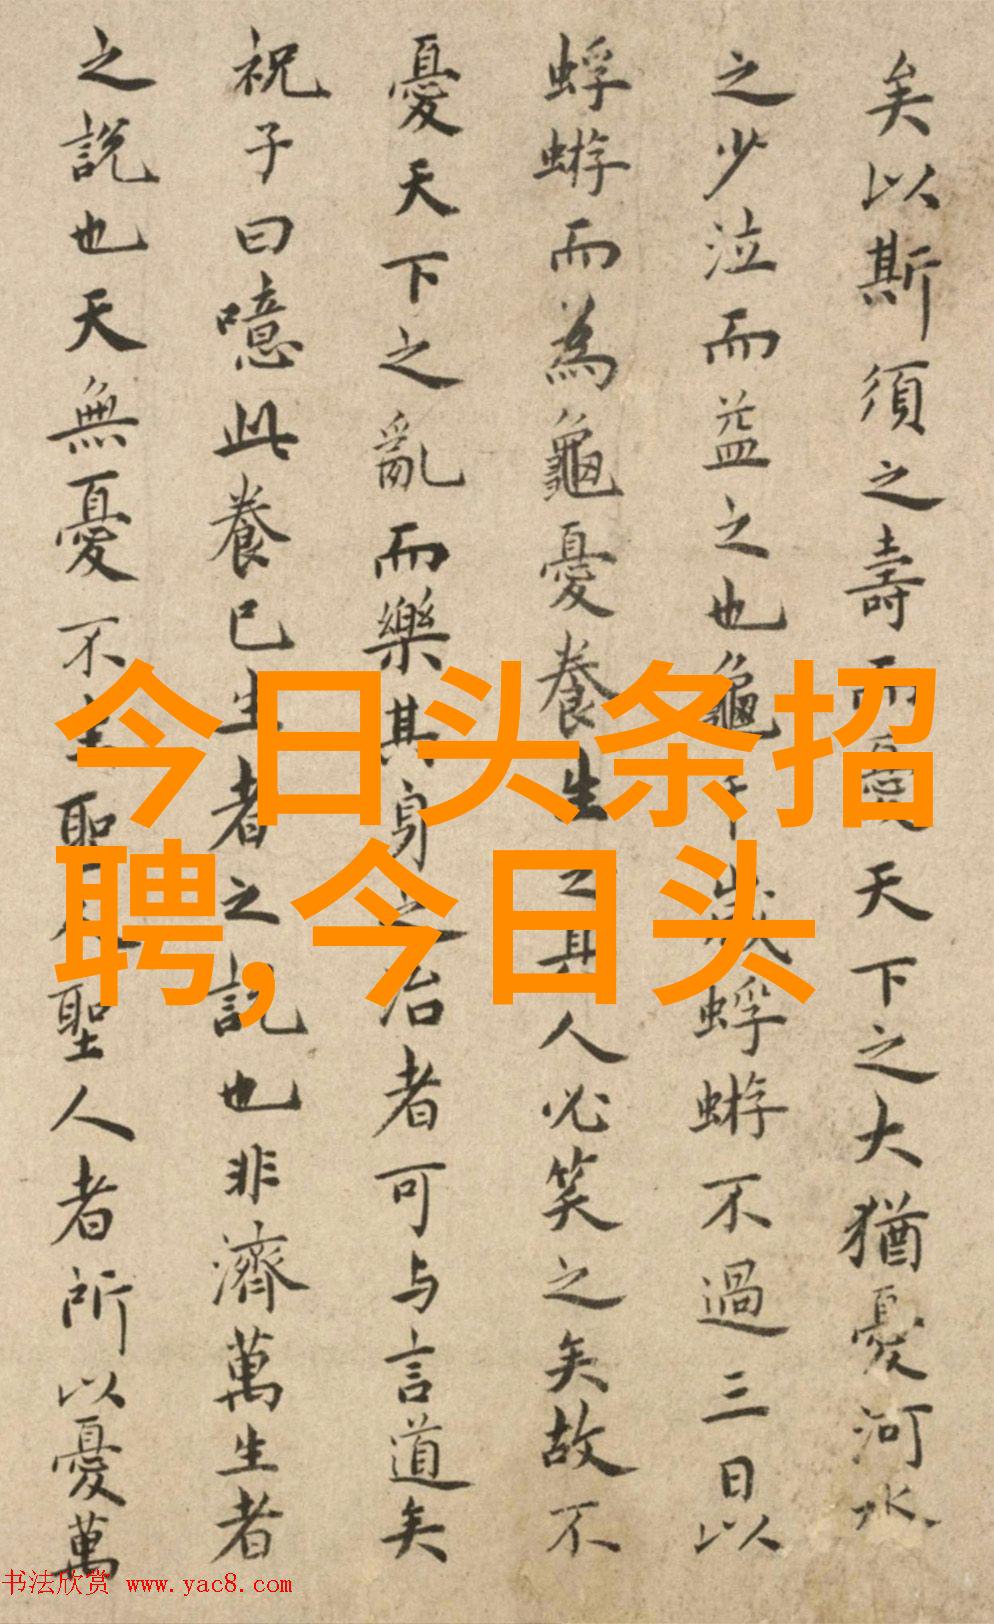 矣以斯須之壽而憂天下之大猶憂河水
之少泣而益之也龜千歲蜉蝣不過三日以
蜉蝣而為龜憂養生之具人必笑之矣故不
憂天下之亂而樂其身之治者可与言道矣
祝子曰噫此養已生者之說也非濟萬生者
之說也天無憂不生聖人聖人者所以憂萬
今日头条招
聘,今日头
书法欣赏 www.yac8.com